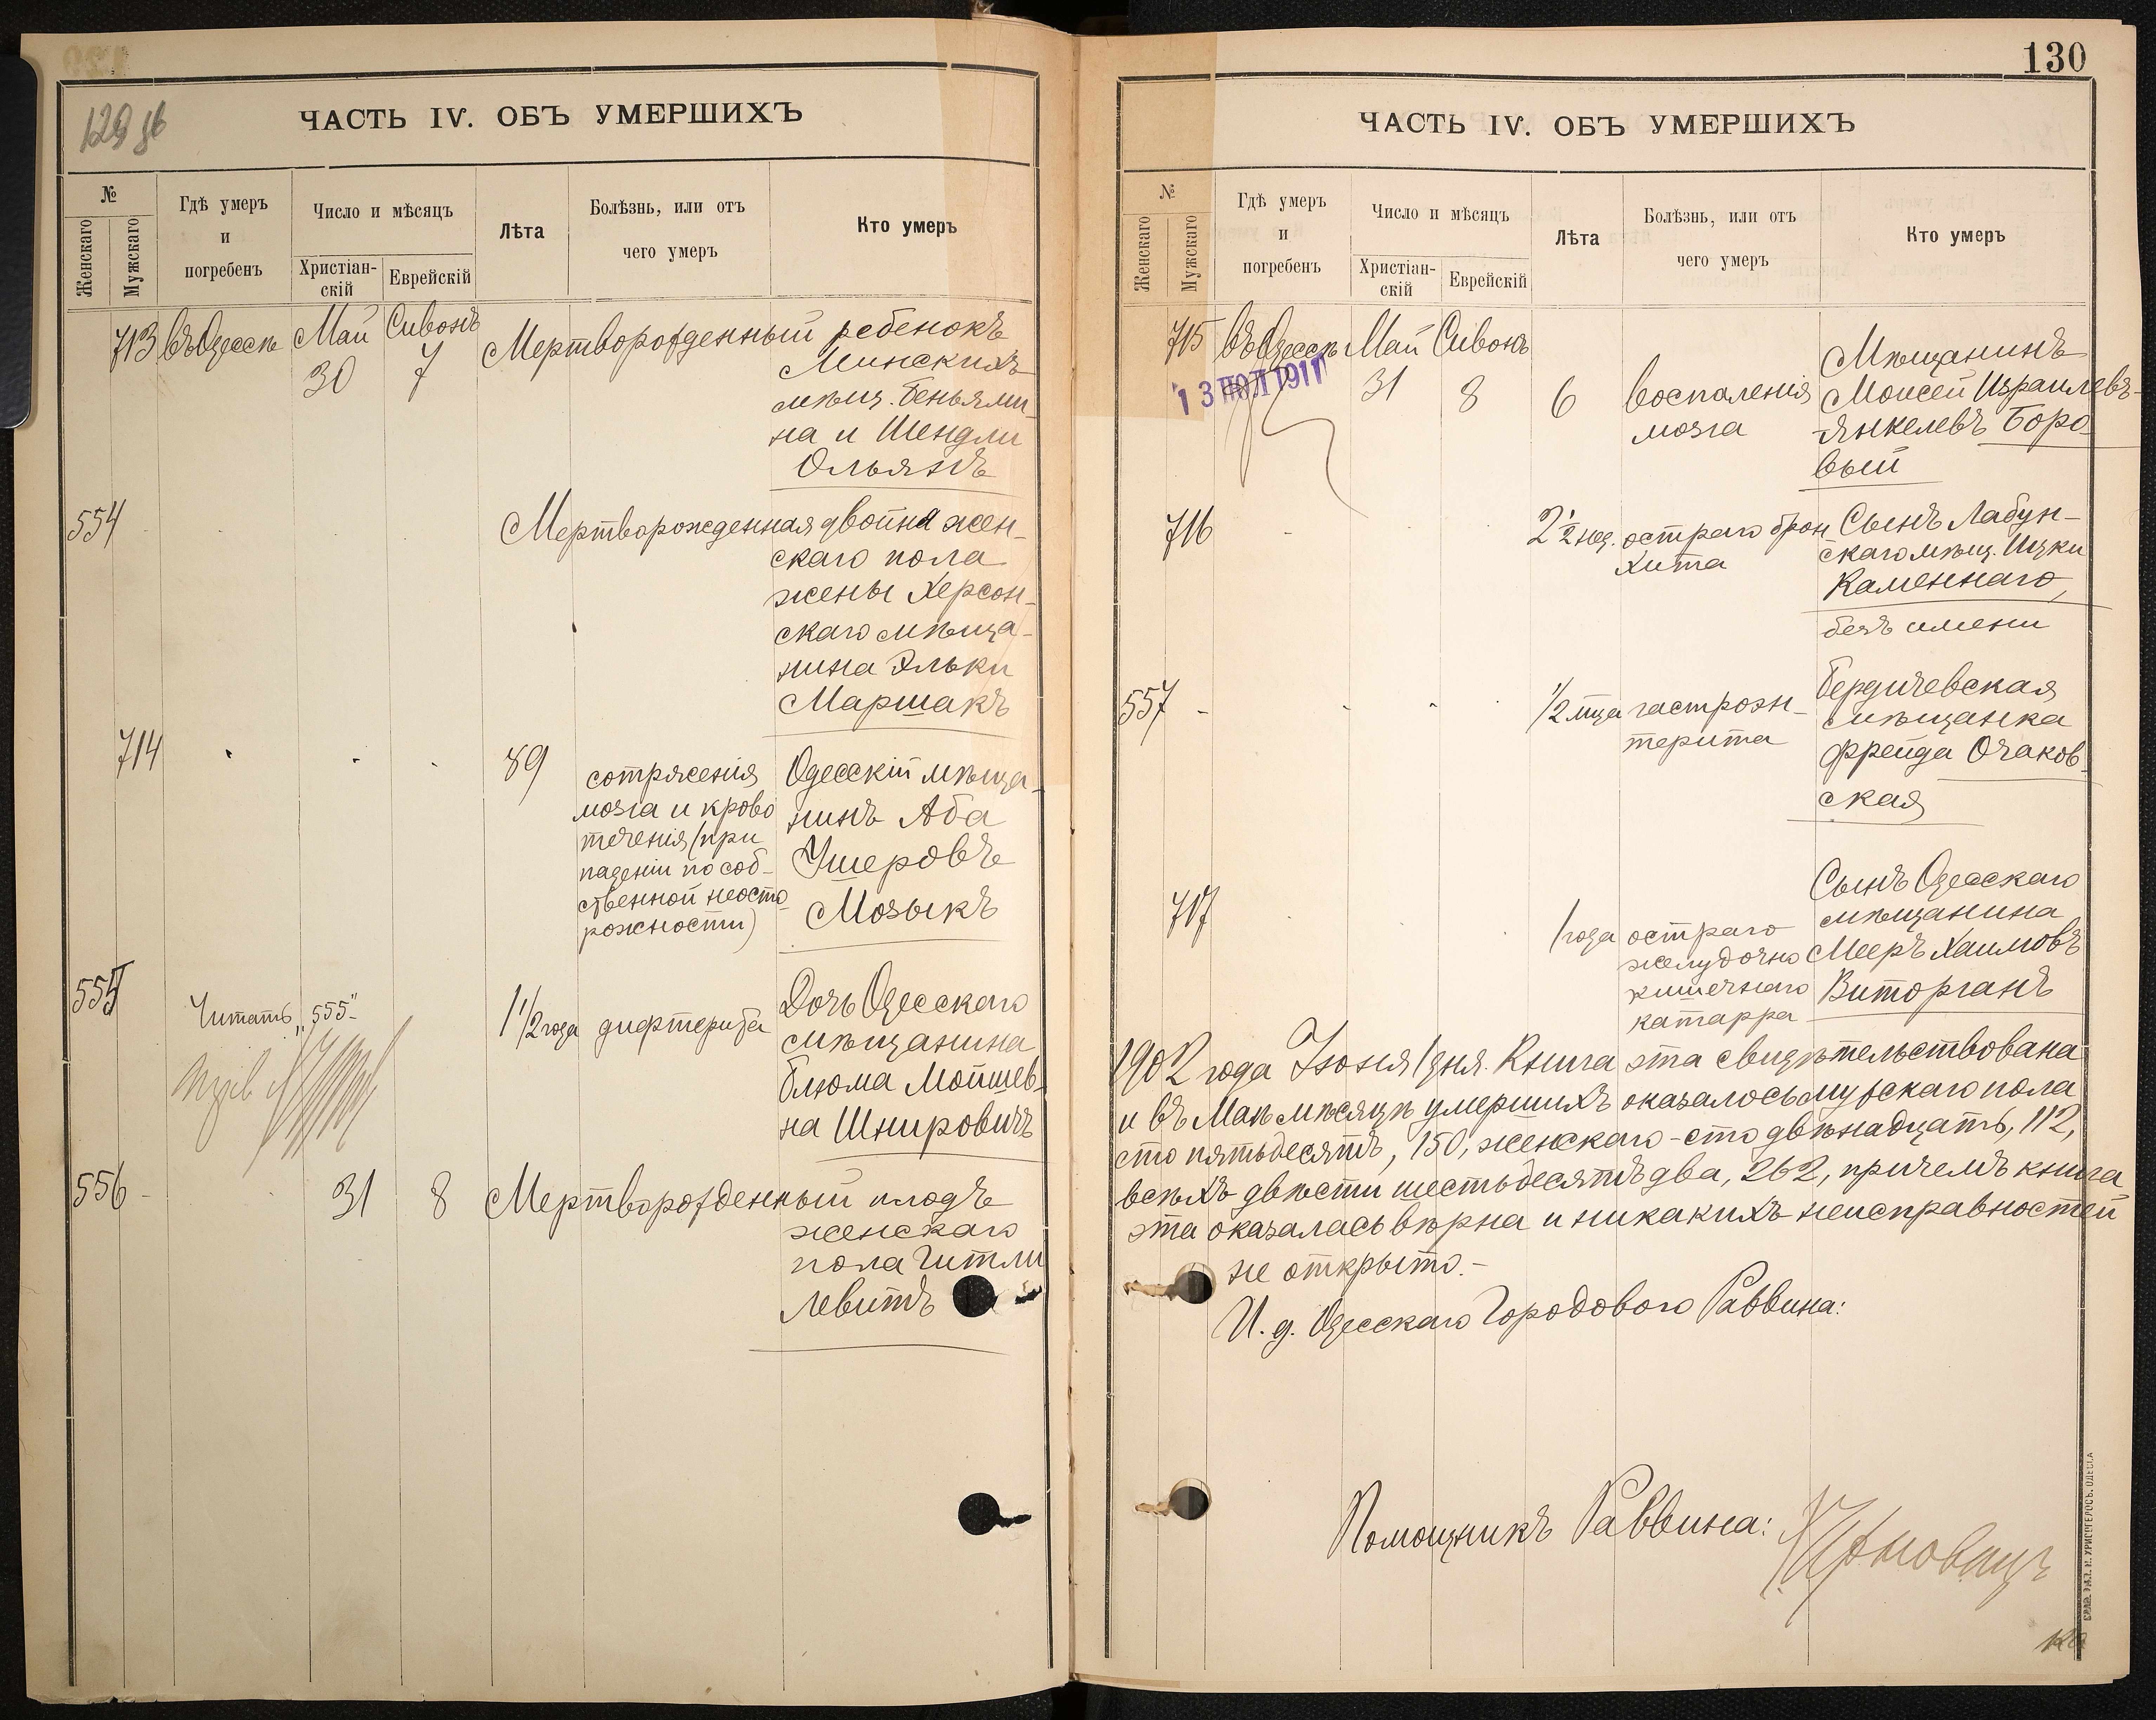 129 об
ЧАСТЬ IV. ОБЪ УМЕРШИХЪ
№
Женскаго
Мужскаго
Гдѣ умеръ
и
погребенъ
Число и мѣсяцъ
Христіан-
скій
Еврейскій
Лѣта
Болѣзнь, или отъ
чего умеръ
Кто умеръ
713 въ Одессѣ Май Сивонъ Мертворожденный ребенокъ
30 7 Минскихъ
мѣщ. Беньями-
на и Шендли
Ольянъ
554 Мертворожденная двойня жен-
скаго пола
жены Херсон-
скаго мѣща-
нина Эльки
Маршакъ
714 89 сотрясенія Одесскій мѣща-
мозга и крово нинъ Аба
теченія (при Ушеровъ
паденіи по соб-
ственной неосто Мозыкъ
рожности)
555 Дочь Одесскаго
Читать „555” 1 1/2 года дифтерита мѣщанина
Блюма Мойшев-
на Шнировичъ
556 - 31 8 Мертворожденный плодъ
женскаго
пола Гитли
Левитъ
130
ЧАСТЬ IV. ОБЪ УМЕРШИХЪ
№
Женскаго
Мужскаго
Гдѣ умеръ
и
погребенъ
Число и мѣсяцъ
Христіан-
скій
Еврейскій
Лѣта
Болѣзнь, или отъ
чего умеръ
Кто умеръ
715 въ Одессѣ Май Сивонъ Мѣщанинъ
13 ИЮЛ 1911 31 8 6 воспаленія Моисей Израилевъ-
мозга Янкелевъ Боро
вый
716 - 2 1/2 нед. остраго брон Сынъ Лабун-
хита скаго мѣщ. Ицки
Каменнаго,
безъ имени
557 - 1/2 мца гастроэн- Бердичевская
терита мѣщанка
Фрейда Очаков-
ская
717 1 года остраго Сынъ Одесскаго
желудочно мѣщанина
кишечнаго Мееръ Хаимовъ
катарра Виторганъ
1902 года Іюня 1 дня. Книга эта свидѣтельствована
и въ Маѣ мѣсяцѣ умершихъ оказалось: мужскаго пола
сто пятьдесятъ, 150, женскаго - сто двѣнадцать, 112,
всѣхъ двѣсти шестьдесятъ два, 262, причемъ книга
эта оказалась вѣрна и никакихъ неисправностей
не открыто. -
И. д. Одесскаго Городового Раввина:
Помощникъ Раввина: